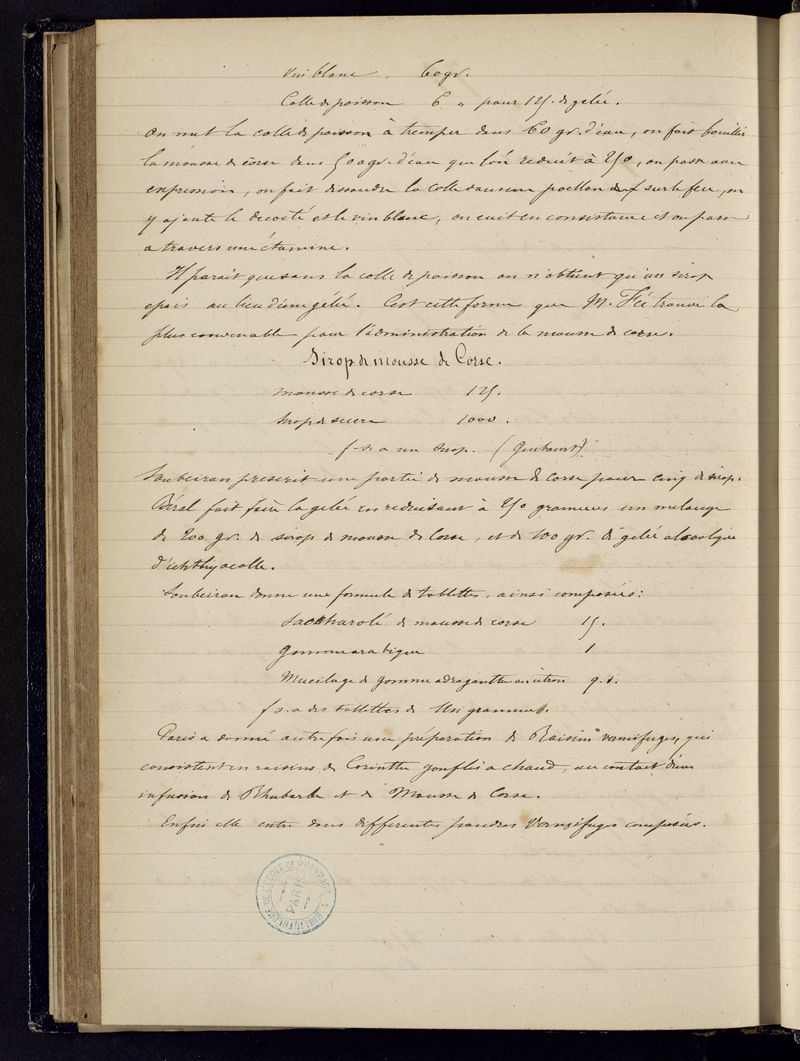 Vin blanc 60 gr.
Colle de poisson 6 " pour 125. de gelée.
On met la colle de poisson à tremper dans 60 gr. d'eau, on fait bouillir
la mousse de corse dans 500 gr. d'eau que l'on reduit à 250, on passe avec
expression, on fait dissoudre la colle dans un poëllon sur le feu, on
y ajoute le decocté et le vin blanc, on cuit en consistance et on passe
a travers une étamine.
Il parait que sans la colle de poisson on n'obtient qu'un sirop
epais au lieu d'une gelée. C'est cette forme que M. Fée trouve la
plus convenable pour l'administration de la mousse de corse.
Sirop de mousse de Corse.
mousse de corse 125.
sirop de sucre 1000.
f. s. a un sirop. (Guibourt)
Soubeiran prescrit une partie de mousse de corse pour cinq de sirop.
Béral fait faire la gelée en reduisant à 250 grammes un melange
de 200 gr. de sirop de mousse de Corse, et de 100 gr. de gelée alcoolique
d'ichthyocolle.
Soubeiran donne une formule de tablettes, ainsi composées:
Saccharolé de mousse de corse 15.
gomme arabique 1
Mucilage de gomme adraganthe au citron q. s.
f s. a des tablettes de un gramme.
Paris a donné autrefois une préparation de Raisins vermifuges, qui
consistent en raisins de Corinthe gonflés a chaud, au contact d'une
infusion de Rhubarbe et de Mousse de Corse.
Enfin elle entre dans differentes poudres Vermifuges composées.
BIBLIOTHEQUE DE L'ECOLE DE PHARMACIE
PARIS